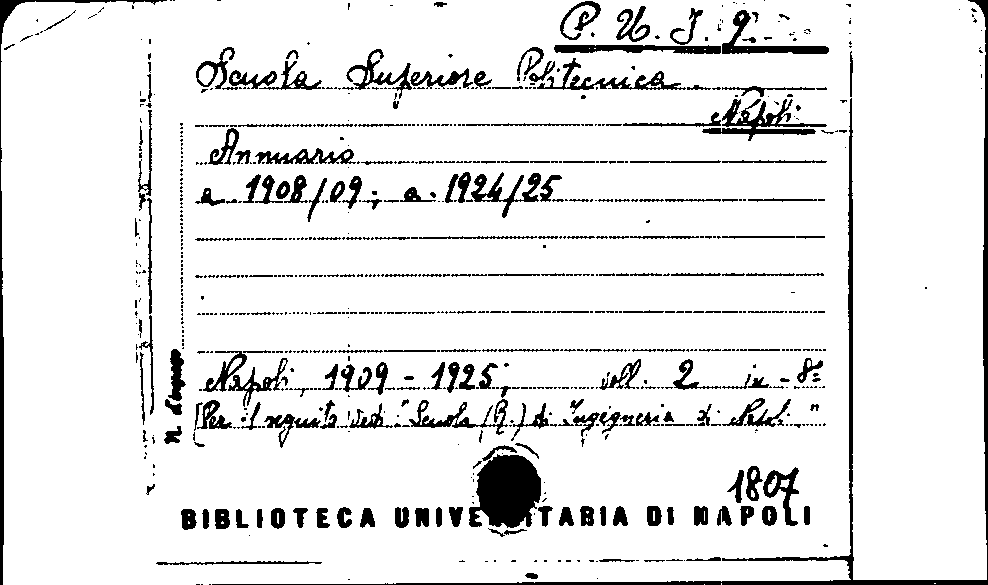 P. U. I. 9.
Scuola Superiore Politecnica.
Napoli.
Annuario.
a. 1908/09; a. 1924/25
Napoli, 1909 - 1925; voll. 2 in - 8º
[Per il seguito vedi: "Scuola (R.) di Ingegneria di Napoli"
N. d'ingresso
1807
BIBLIOTECA UNIVERSITARIA DI NAPOLI